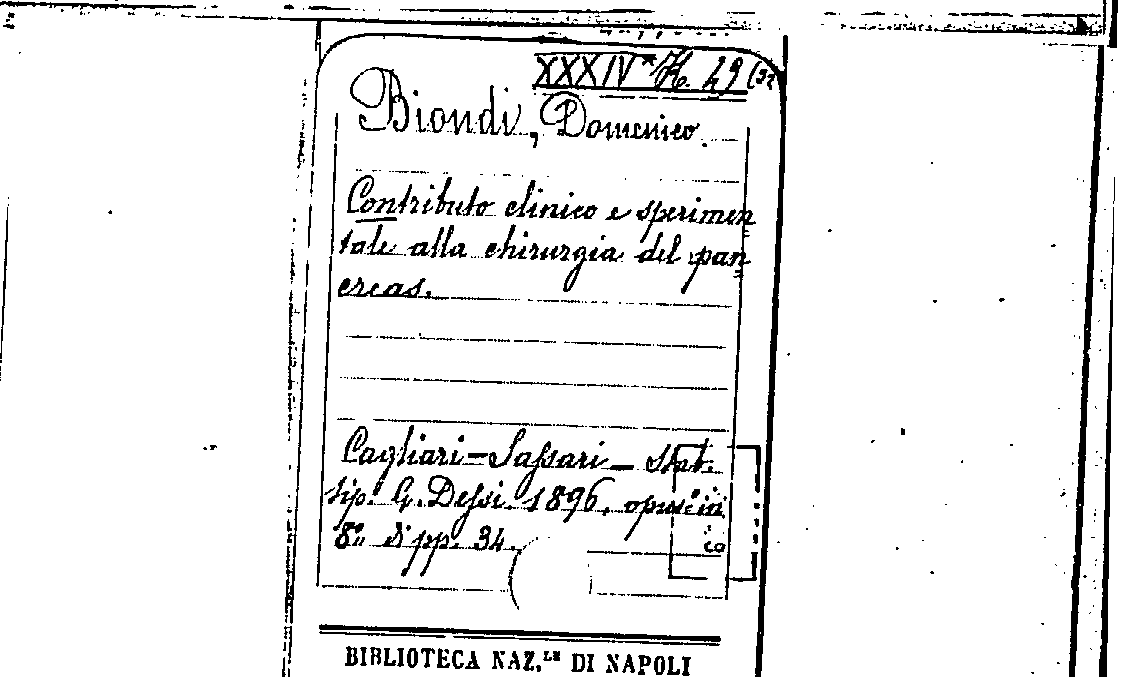 XXXIV* H. 49 (32
Biondi, Domenico.
Contributo clinico e sperimen
tale alla chirurgia del pan
creas.
Cagliari - Sassari - Stab.
tip. G. Dessi. 1896. opusc. in
8° di pp. 34.
BIBLIOTECA NAZ.LE DI NAPOLI